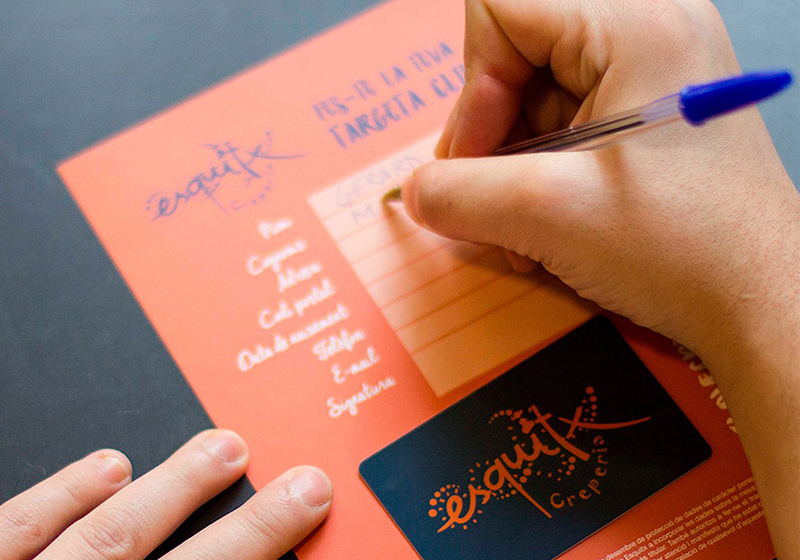 esquitx
Creperia
FES-TE LA TEVA
TARGETA CLU
Nom
Cognoms
Adreça
Codi postal
Data de naixement
Telèfon
E-mail
Signatura
GERARD
M
esquitx
Creperia
desembre de protecció de dades de caràcter perso
Esquitx a incorporar les dades sobre la meva